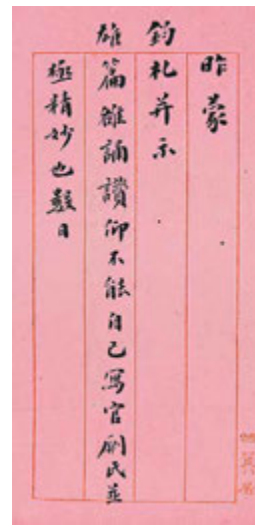 昨蒙
鈞札并示
雄篇雒誦讚仰不能自已寫官劇民並
極精妙也鼗日